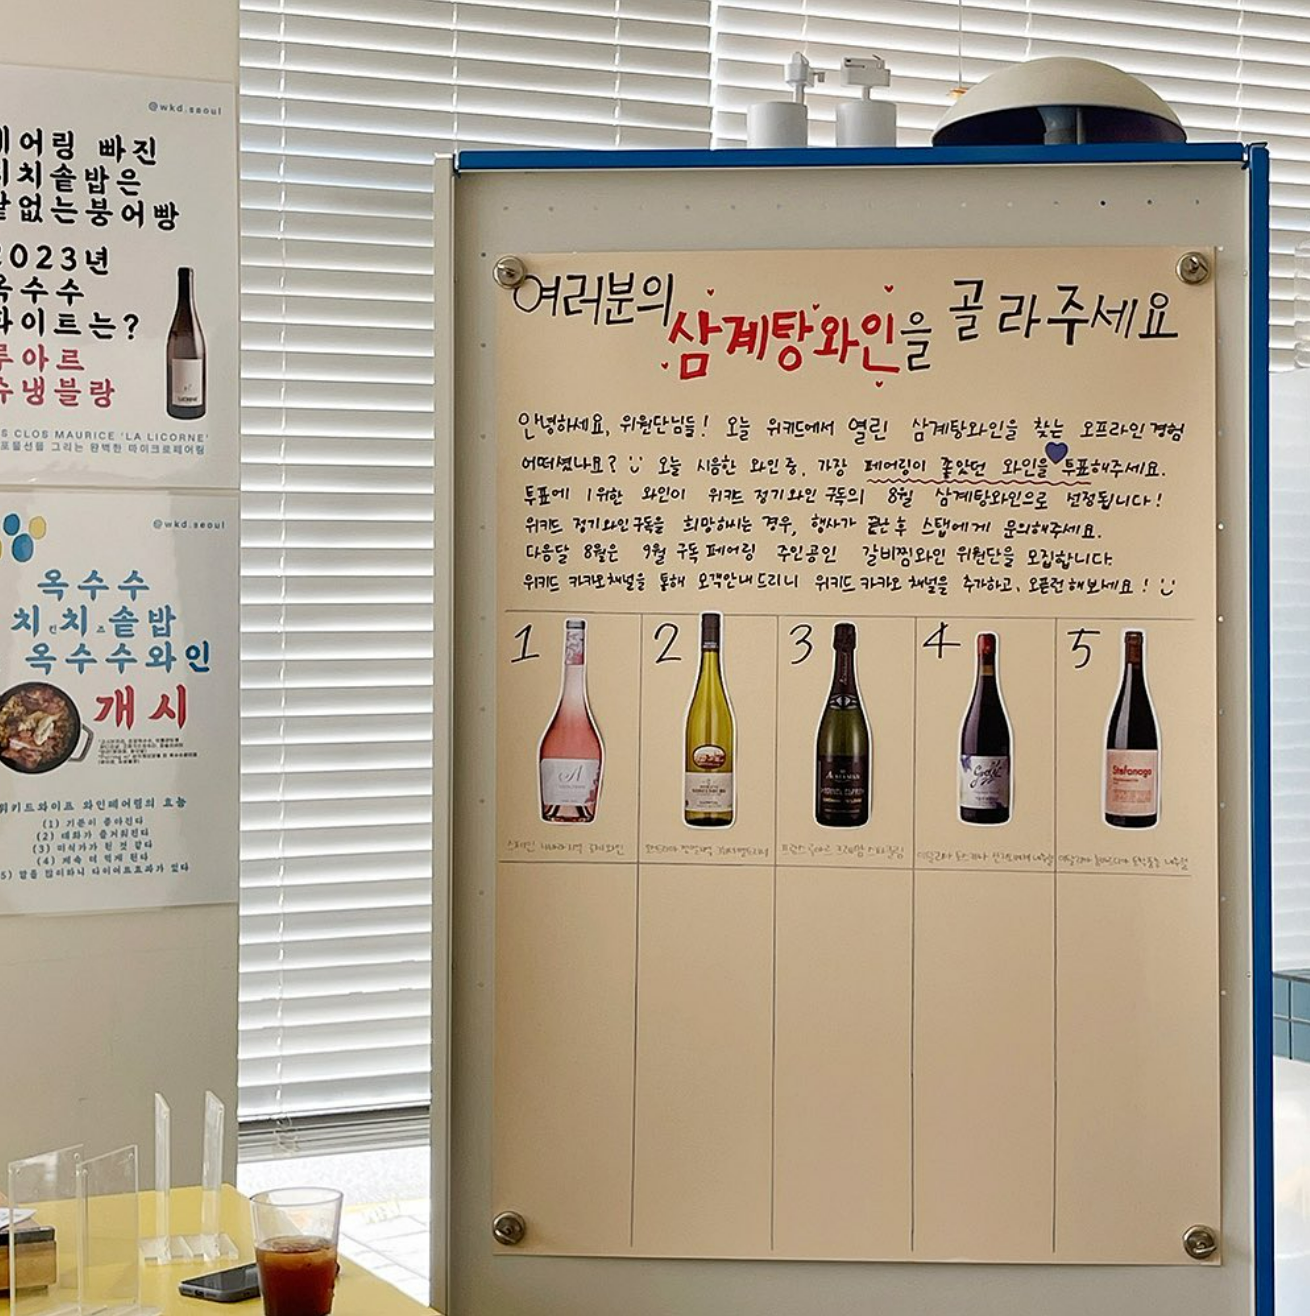 @wkd.seoul
어링 빠진
치솥밥은
없는붕어빵
2023년
옥수수
화이트는?
루아르
수냉블랑
CLOS MAURICE 'LA LICORNE'
포물선을 그리는 완벽한 마이크로페어링
@wkd.seoul
옥수수
치킨치즈솥밥
옥수수와인
개시
위키드와이프 와인페어링의 효능
(1) 기분이 좋아진다
(2) 대화가 즐거워진다
(3) 미식가가 된 것 같다
(4) 계속 더 먹게 된다
(5) 말을 많이하니 다이어트효과가 있다
여러분의 삼계탕와인을 골라주세요
안녕하세요, 위원단님들! 오늘 위키드에서 열린 삼계탕와인을 찾는 오프라인 경험
어떠셨나요? 오늘 시음한 와인 중, 가장 페어링이 좋았던 와인을 투표해주세요.
투표에 1위한 와인이 위키드 정기와인구독의 8월 삼계탕와인으로 선정됩니다!
위키드 정기와인구독을 희망하시는 경우, 행사가 끝난 후 스탭에게 문의해주세요.
다음달 8월은 9월 구독 페어링 주인공인 갈비찜와인 위원단을 모집합니다.
위키드 카카오채널을 통해 모객안내드리니 위키드 카카오 채널을 추가하고, 오픈런해보세요!
1 2 3 4 5
A
ACKERMAN
Stefanago
스페인 로제와인
프랑스 루아르 크레망 스파클링
이탈리아 토스카나 산지오베제 내추럴